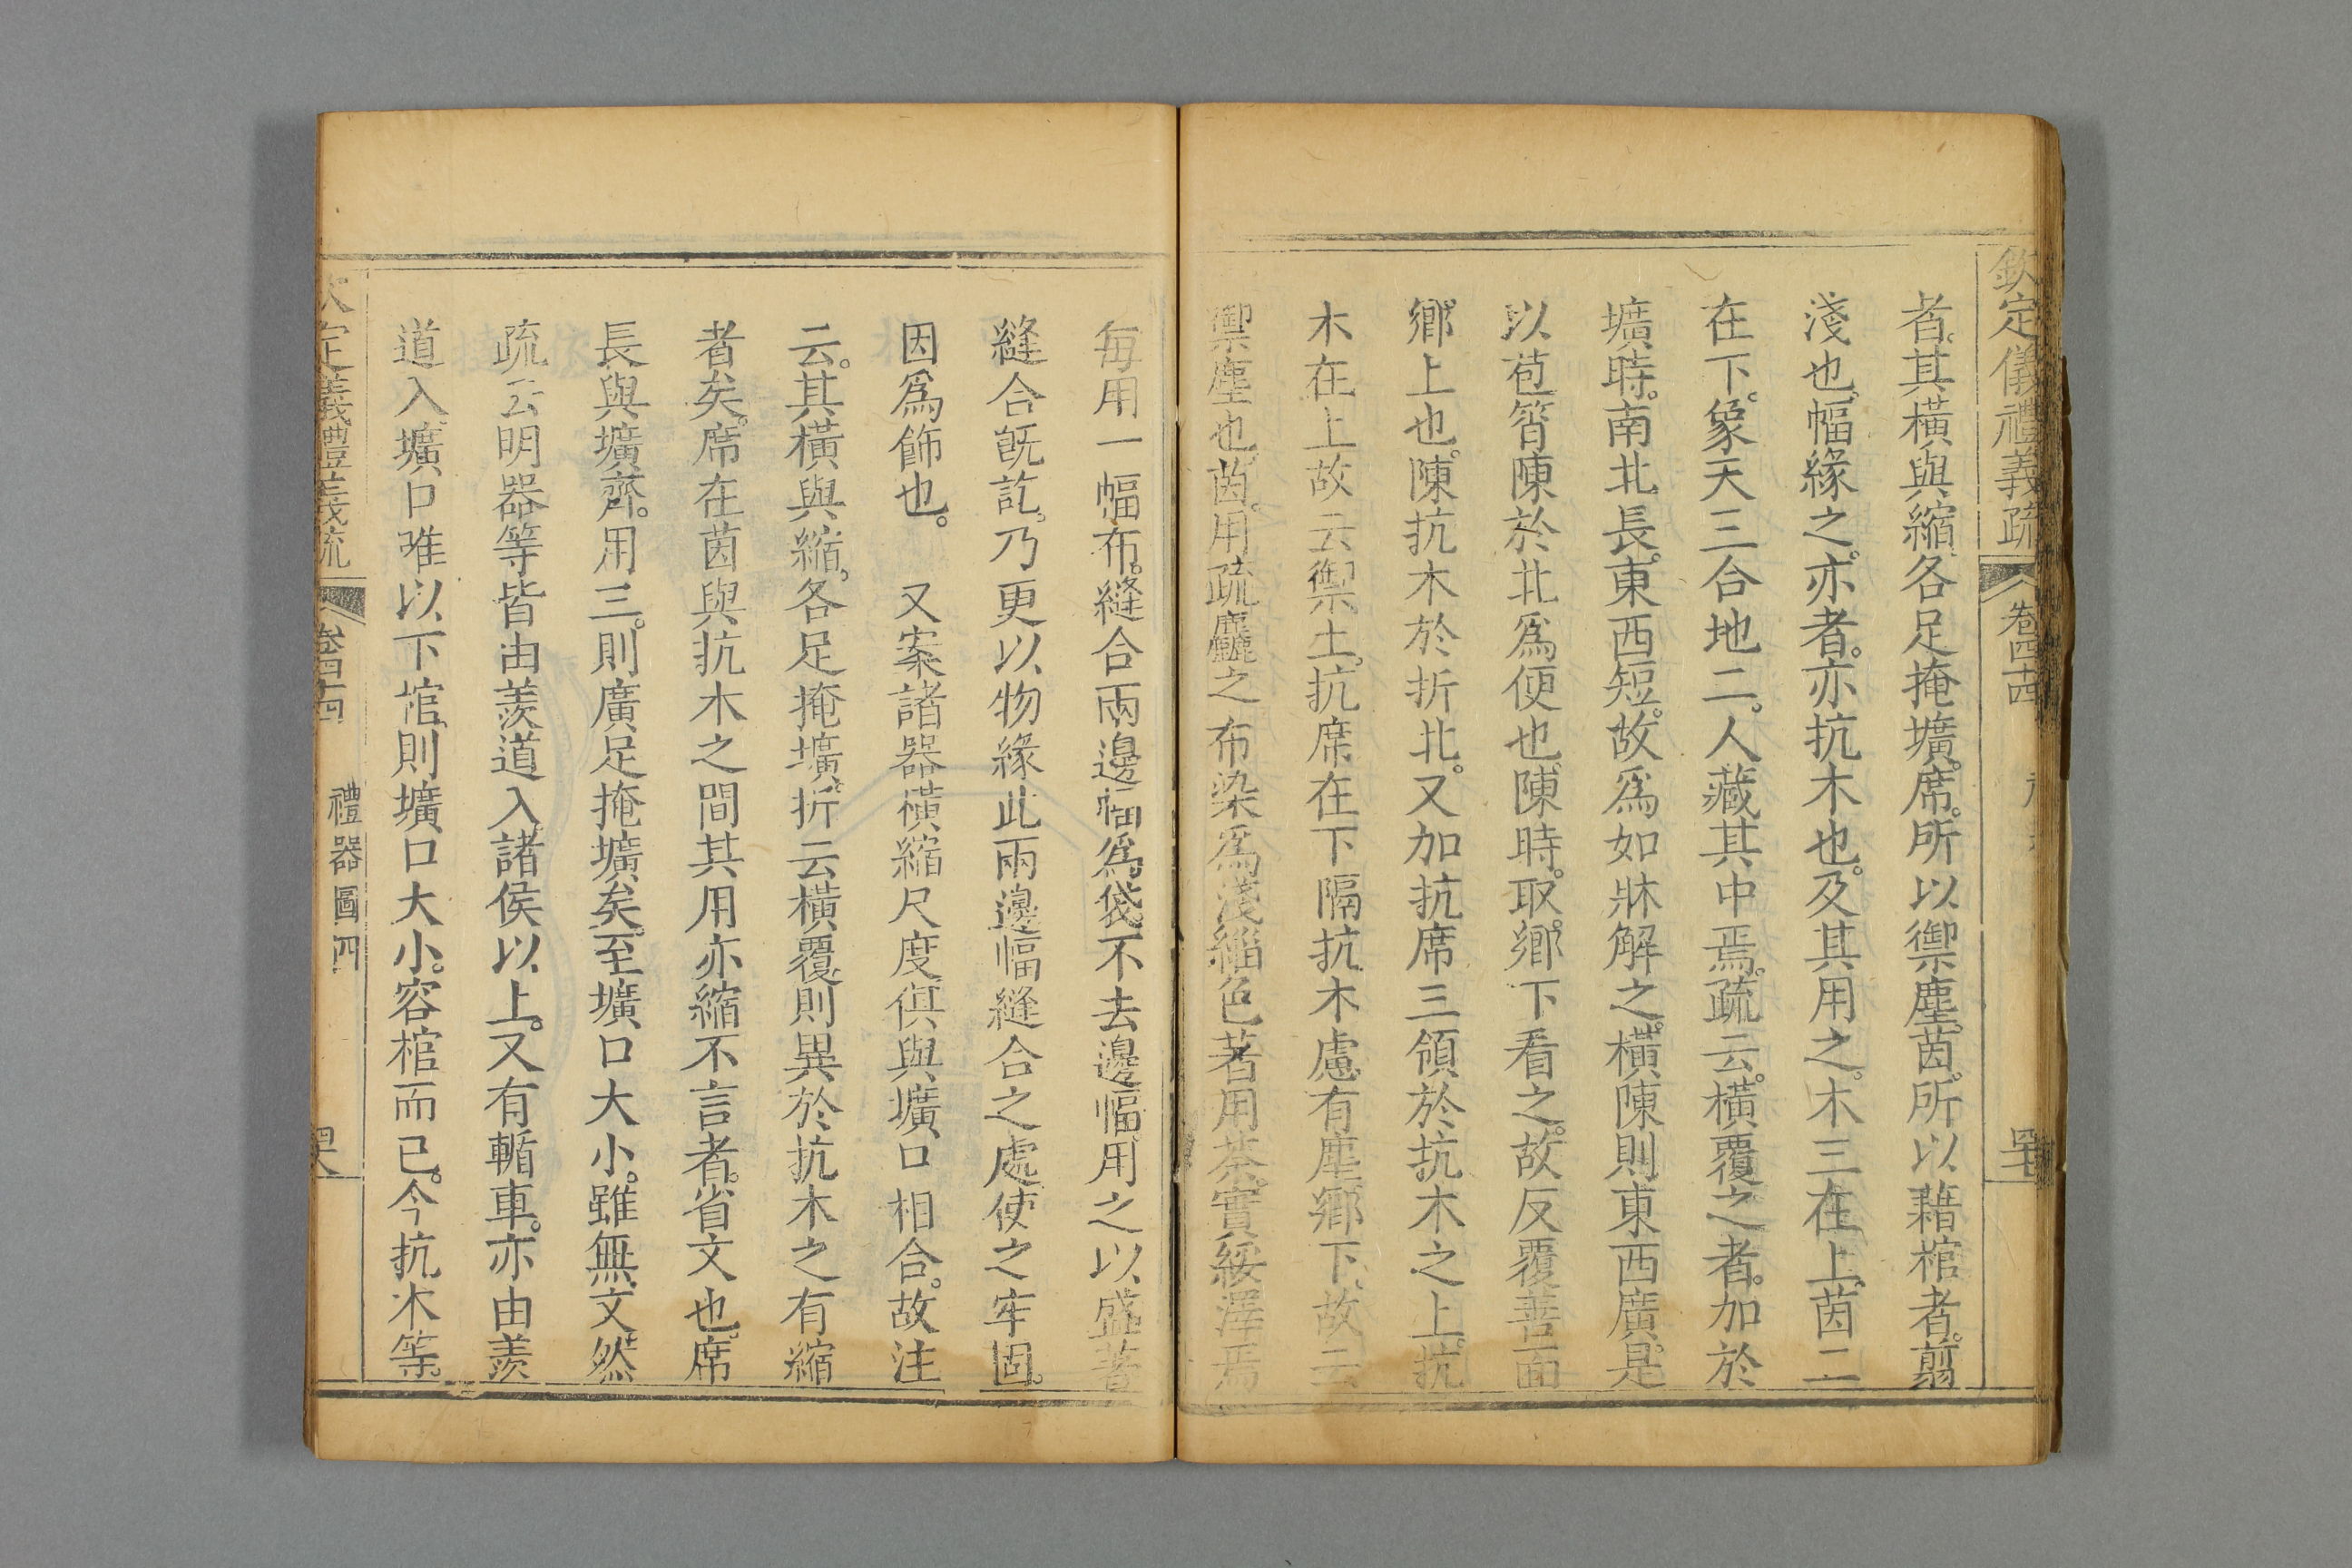 欽定儀禮義疏 卷四十四
者。其橫與縮。各足掩壙。席。所以禦塵。茵。所以藉棺者。翦
淺也。幅緣之。亦者。亦抗木也。及其用之。木三在上。茵二
在下。象天三合地二。人藏其中焉。疏云。橫覆之者。加於
壙時。南北長。東西短。故爲如牀解之。橫陳則東西廣。是
以苞筲陳於北爲便也。陳時。取鄉下看之。故反覆善面
鄉上也。陳抗木於折北。又加抗席三領於抗木之上。抗
木在上。故云禦土。抗席在下。隔抗木。慮有塵鄉下。故云
禦塵也。茵。用疏麤之布。染爲淺緇色。著用荼。實綏澤焉
每用一幅布。縫合兩邊幅爲袋。不去邊幅。用之以盛著
縫合旣訖。乃更以物緣此兩邊幅縫合之處。使之牢固。
因爲飾也。　又案諸器橫縮尺度。俱與壙口相合。故注
云。其橫與縮。各足掩壙。折云橫覆。則異於抗木之有縮
者矣。席在茵與抗木之間。其用亦縮。不言者。省文也。席
長與壙齊。用三。則廣足掩壙矣。至壙口大小。雖無文。然
疏云明器等皆由羨道入。諸侯以上。又有輴車。亦由羨
道入。壙口唯以下棺。則壙口大小。容棺而已。今抗木等。
定義禮義疏 卷四十四 禮器圖四